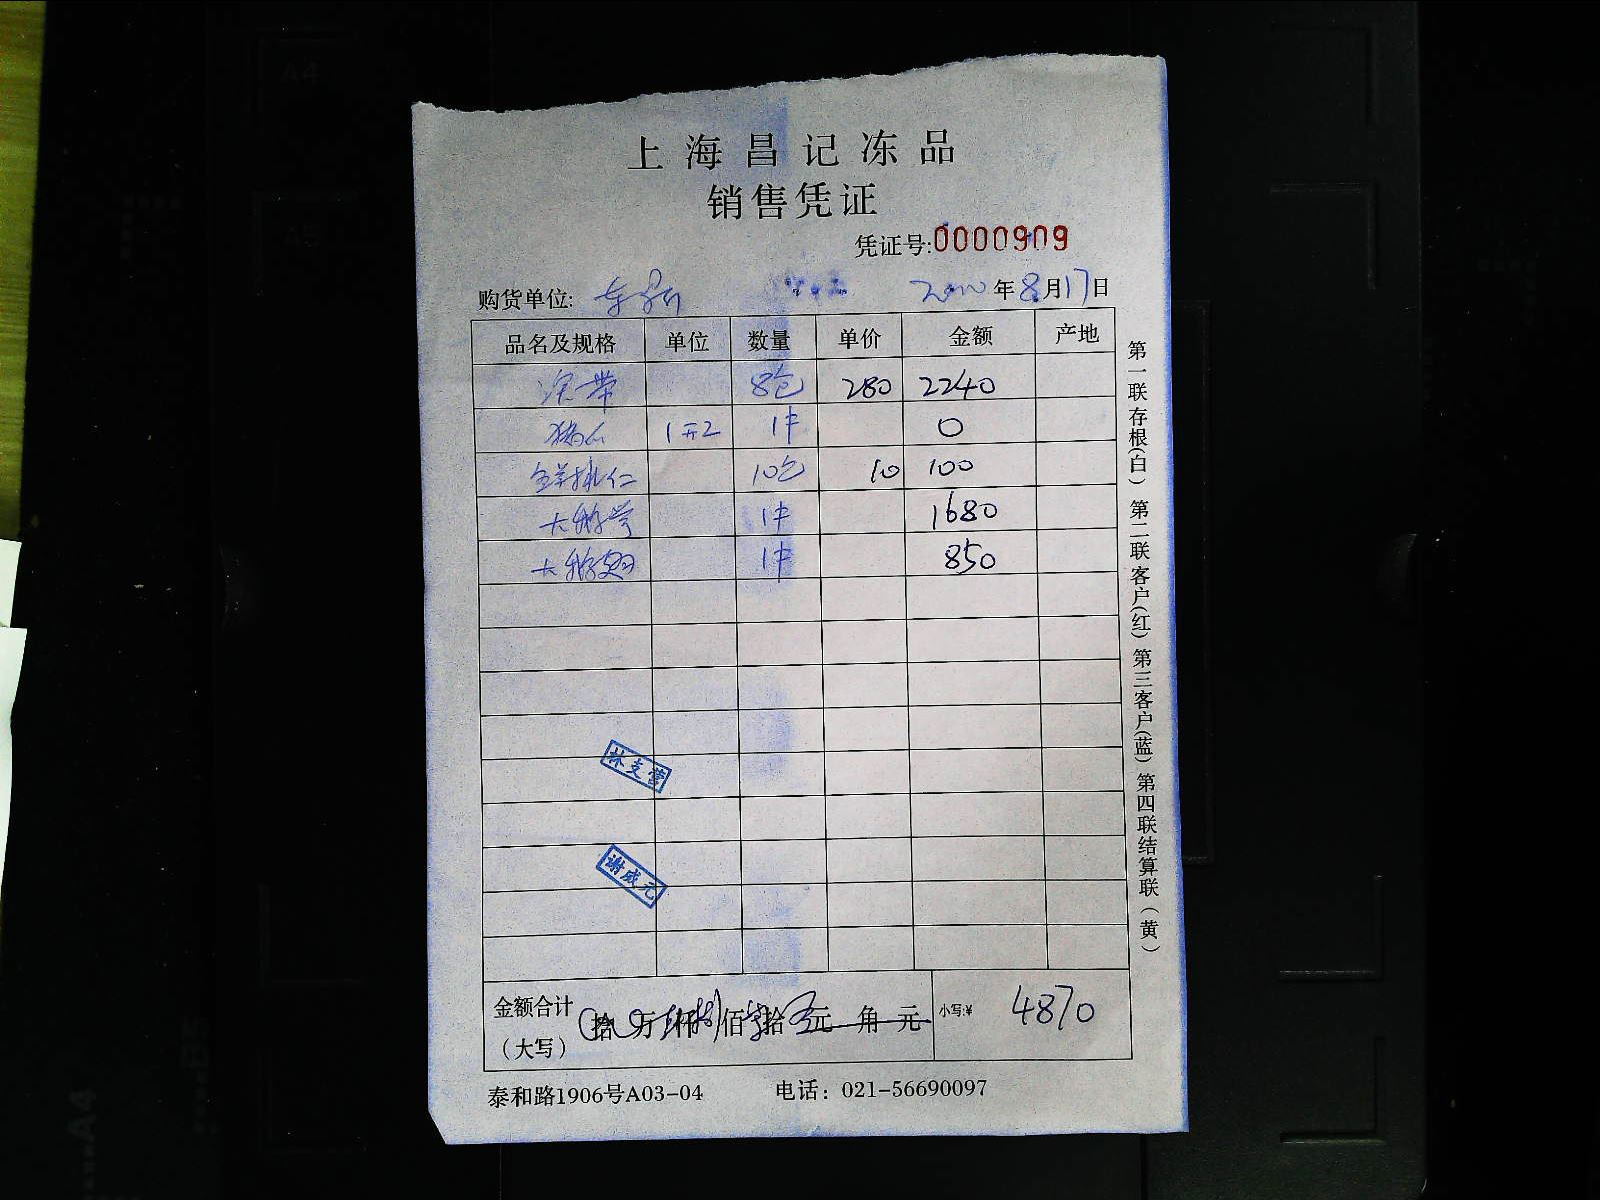 上海昌记冻品
销售凭证
凭证号:0000909
购货单位: 年8月17日
品名及规格 单位 数量 单价 金额 产地
8包 280 2240
1开2 1件 0
10包 10 100
大鹅掌 1件 1680
大鹅翅 1件 850
林支营
谢成元
金额合计 拾 万 仟 佰 拾 元 角 元 小写:¥ 4870
（大写）
泰和路1906号A03-04 电话：021-56690097
第一联存根(白) 第二联客户(红) 第三客户(蓝) 第四联结算联(黄)